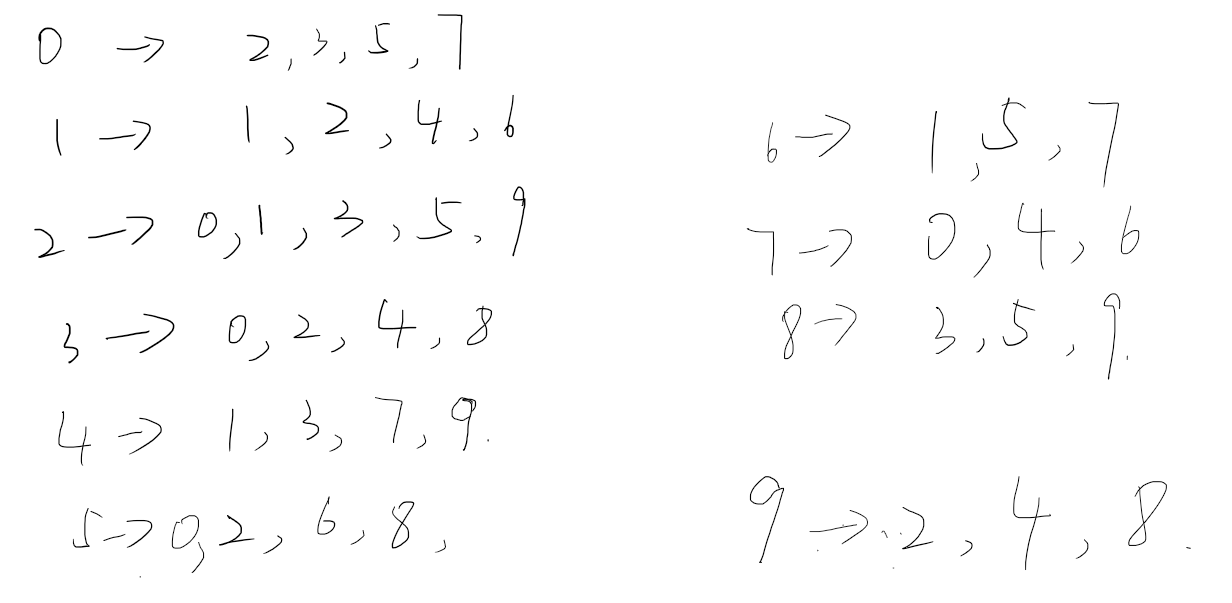 0 → 2, 3, 5, 7
1 → 1, 2, 4, 6
2 → 0, 1, 3, 5, 9
3 → 0, 2, 4, 8
4 → 1, 3, 7, 9.
5 → 0, 2, 6, 8,
6 → 1, 5, 7
7 → 0, 4, 6
8 → 3, 5, 9.
9 → 2, 4, 8.